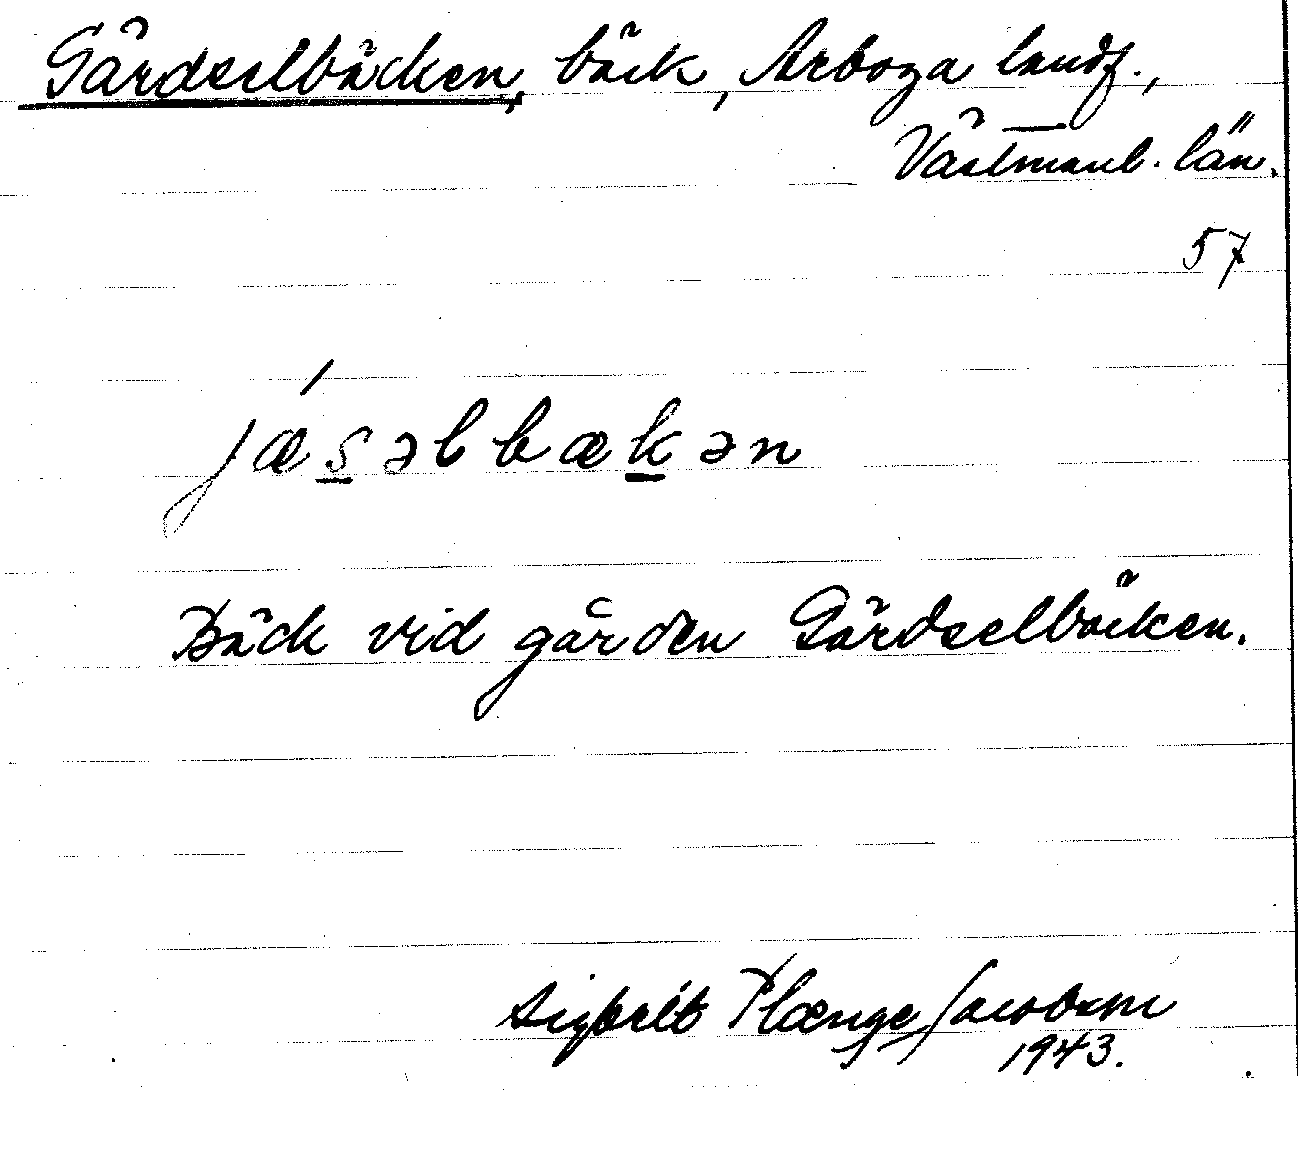 Gärdselbäcken, bäck, Arboga landsf.,
Västmanl. län.
57
jæ´s̲əlbæk̲ən
Bäck vid gården Gärdselbäcken.
Sigfelt Plænge Jacobson
1943.